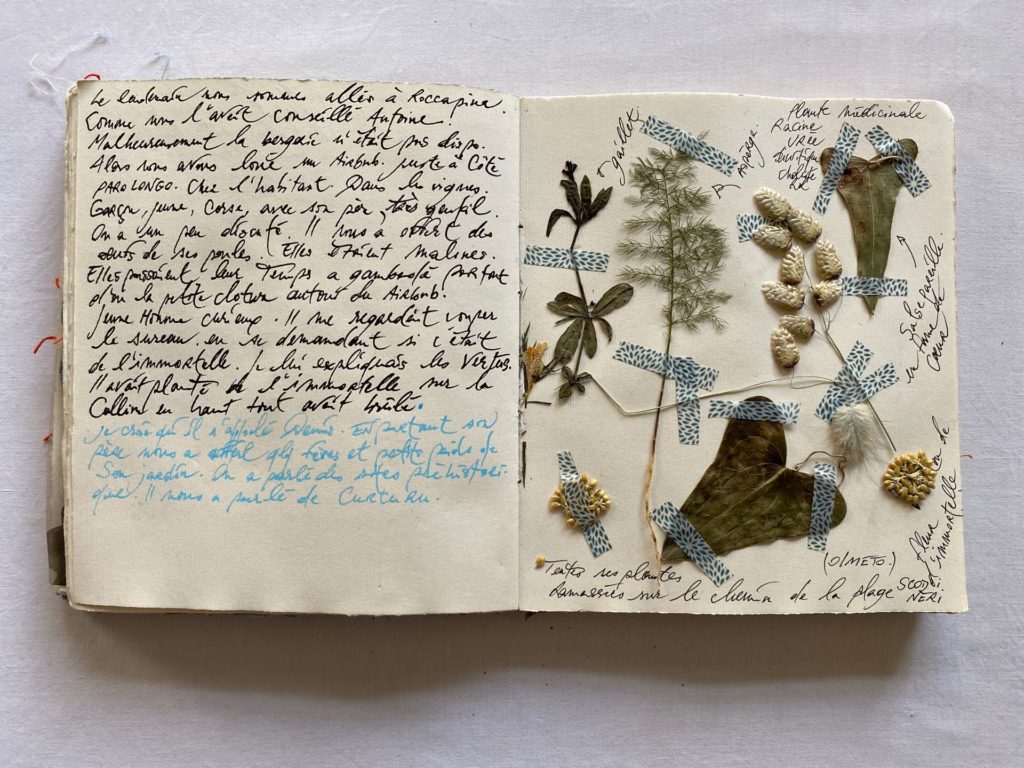 Le lendemain nous sommes allés à Roccapina.
Comme nous l'avait conseillé Antoine.
Malheureusement la bergerie n'était pas dispo.
Alors nous avons loué un Airbnb. juste à Côté
PAROLONGO. Chez l'habitant. Dans les vignes.
Garçon, jeune, Corse, avec son père, très gentil.
On a un peu discuté. Il nous a offert des
œufs de ses poules. Elles étaient malines.
Elles passaient leur temps a gambadé partout
d'où la petite cloture autour du Airbnb.
Jeune Homme curieux. Il me regardait couper
le sureau en se demandant si c'était
de l'immortelle. Je lui expliquais les vertus.
Il avait planté de l'immortelle sur la
Colline en haut tout avait brûlé.
Je crois qu'il s'appelé En partant son
père nous a offert qlq fèves et petits poids de
Son jardin. On a parlé des sites préhistori-
que. Il nous a parlé de Cucturu.
gaillet
Asperge
Plante médicinale
Racine
Salsepareille
en forme de
Cœur
fleur
d'immortelle
Toutes ses plantes
Ramassées sur le chemin de la plage
(OLMETO.)
NERI